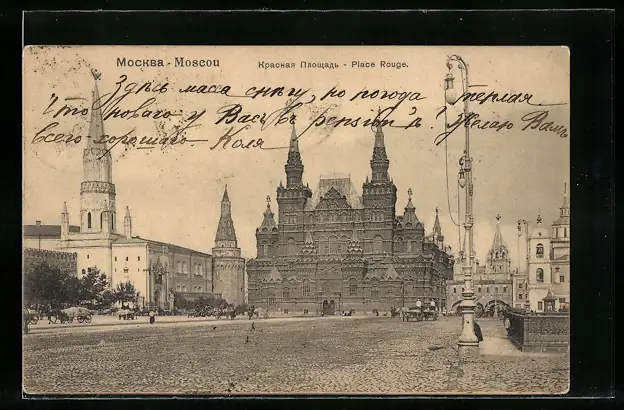 Москва - Moscou
Красная Площадь - Place Rouge.
Здѣсь масса снѣгу, но погода теплая
Что новаго у Васъ въ pension'ѣ. Желаю Вамъ
Всего хорошаго Коля